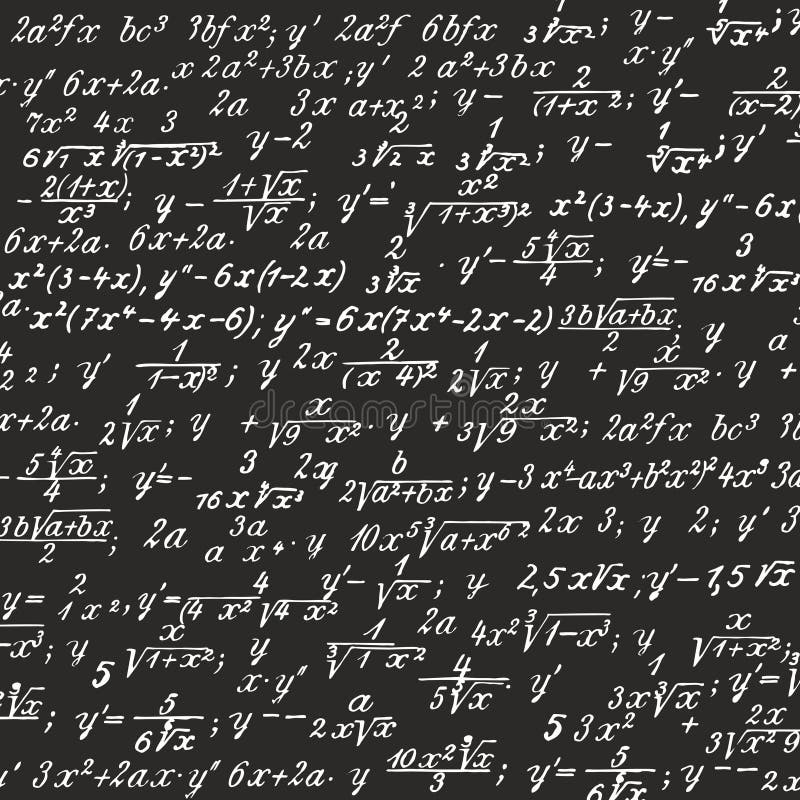 2a²fx bc³ 3bfx²; y' 2a²f 6bfx 1/(3∛x²); y- 1/(5√x⁴);
x·y" 6x+2a. x 2a²+3bx ; y' 2 a²+3bx x·y"
2a 3x a+x²; y- 2/(1+x²); y'- 2/(x-2)
7x² 4x 3
6√1 x ∛(1-x²)² y-2 2/(3∛2 x) 1/(3∛x²); y- 1/(5√x⁴); y'
- 2(1+x)/x³; y- (1+√x)/√x; y'= x²/∛(1+x³)² x²(3-4x), y"-6x
6x+2a. 6x+2a. 2a 2/(3∛x) · y'- 5∜x/4; y'=- 3/(16x∜x³)
x²(3-4x), y"-6x(1-2x)
a. x²(7x⁴-4x-6); y"=6x(7x⁴-2x-2) 3b√(a+bx)/2; y a
2 2; y' 1/(1-x)²; y 2x 2/(x 4)² 1/(2√x); y + x/√(9 x²) · y +
x+2a. 1/(2√x); y + x/√(9 x²) · y + 2x/(3√(9 x²)); 2a²fx bc³
- 5∜x/4; y'=- 3/(16x∜x³) 2x b/(2√(a²+bx)); y-3 x⁴-ax³+b²x²)² 4x³ 3a
3b√(a+bx)/2; 2a 3a
a x⁴·y 10x⁵∛(a+x⁶ ²) 2x 3; y 2; y' 3
y= 2/(1 x²), y'= 4/((4 x²)√(4 x²)) y'- 1/√x; y 2,5x√x; y'-1,5√x
-x³; y x/(5√(1+x²)); y 1/∛(1 x²) 2a 4x²∛(1-x³); y x/√(1+x²);
x·y" 4/(5⁵√x) · y' 1/(3x∛x); y'=√
∛x; y'= 5/(6⁶√x); y -- a/(2x√x) 5 3x² + 2x/(3√(x² 9
y' 3x²+2ax·y" 6x+2a. y 10x²∛x/3; y'= 5/(6⁶√x); y -- a/(2x
dreamstime.